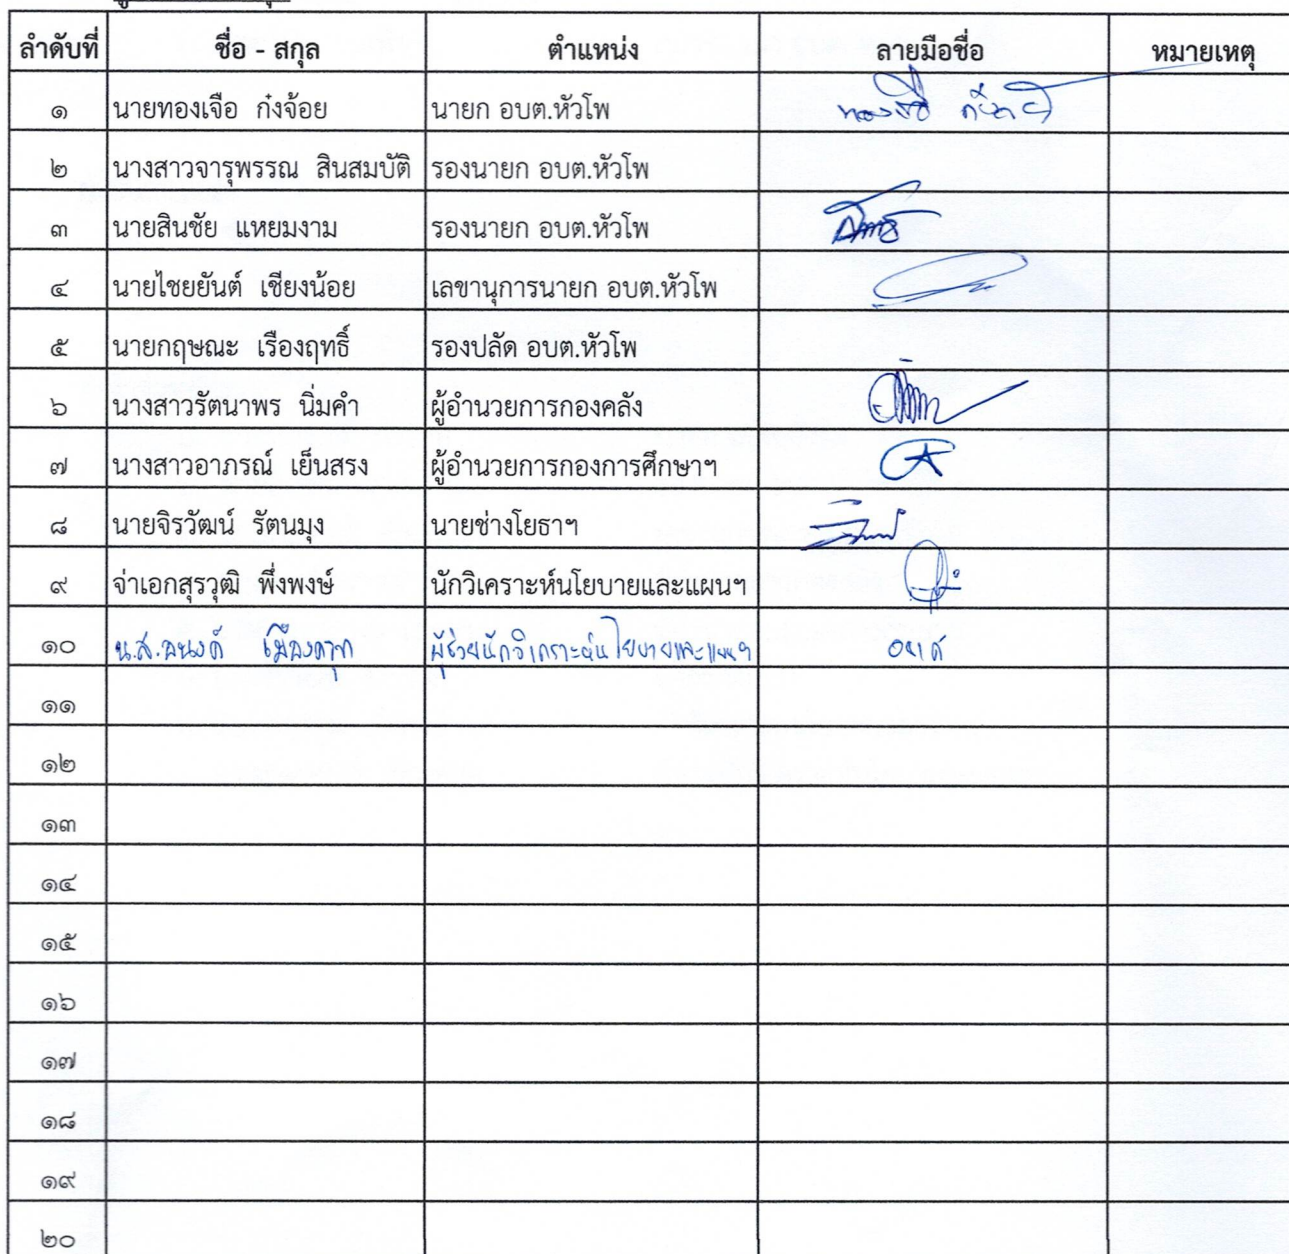 ลำดับที่ ชื่อ - สกุล ตำแหน่ง ลายมือชื่อ หมายเหตุ
๑ นายทองเจือ ก๋งจ้อย นายก อบต.หัวโพ
๒ นางสาวจารุพรรณ สินสมบัติ รองนายก อบต.หัวโพ
๓ นายสินชัย แหยมงาม รองนายก อบต.หัวโพ
๔ นายไชยยันต์ เชียงน้อย เลขานุการนายก อบต.หัวโพ
๕ นายกฤษณะ เรืองฤทธิ์ รองปลัด อบต.หัวโพ
๖ นางสาวรัตนาพร นิ่มคำ ผู้อำนวยการกองคลัง
๗ นางสาวอาภรณ์ เย็นสรง ผู้อำนวยการกองการศึกษาฯ
๘ นายจิรวัฒน์ รัตนมุง นายช่างโยธาฯ
๙ จ่าเอกสุรวุฒิ พึ่งพงษ์ นักวิเคราะห์นโยบายและแผนฯ
๑๐ น.ส.อนงค์ ผู้ช่วยนักวิเคราะห์นโยบายและแผนฯ
๑๑
๑๒
๑๓
๑๔
๑๕
๑๖
๑๗
๑๘
๑๙
๒๐